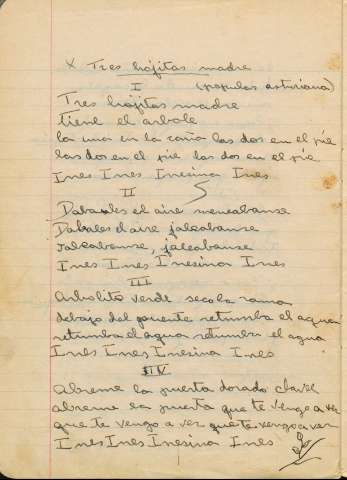 x Tres hojitas madre
I (popular asturiana)
Tres hojitas madre
tiene el arbole
la una en la raña las dos en el pie
las dos en el pie las dos en el pie
Ines Ines Inesina Ines
II
Dabales el aire meneabanse
Dabales el aire jaleabanse
jaleabanse, jaleabanse
Ines Ines Inesina Ines
III
Arbolito verde seco la rama
debajo del puente retumba el agua
retumba el agua retumba el agua
Ines Ines Inesina Ines
IV
Abreme la puerta dorado clavel
abreme la puerta que te vengo a ver
que te vengo a ver que te vengo a ver
Ines Ines Inesina Ines